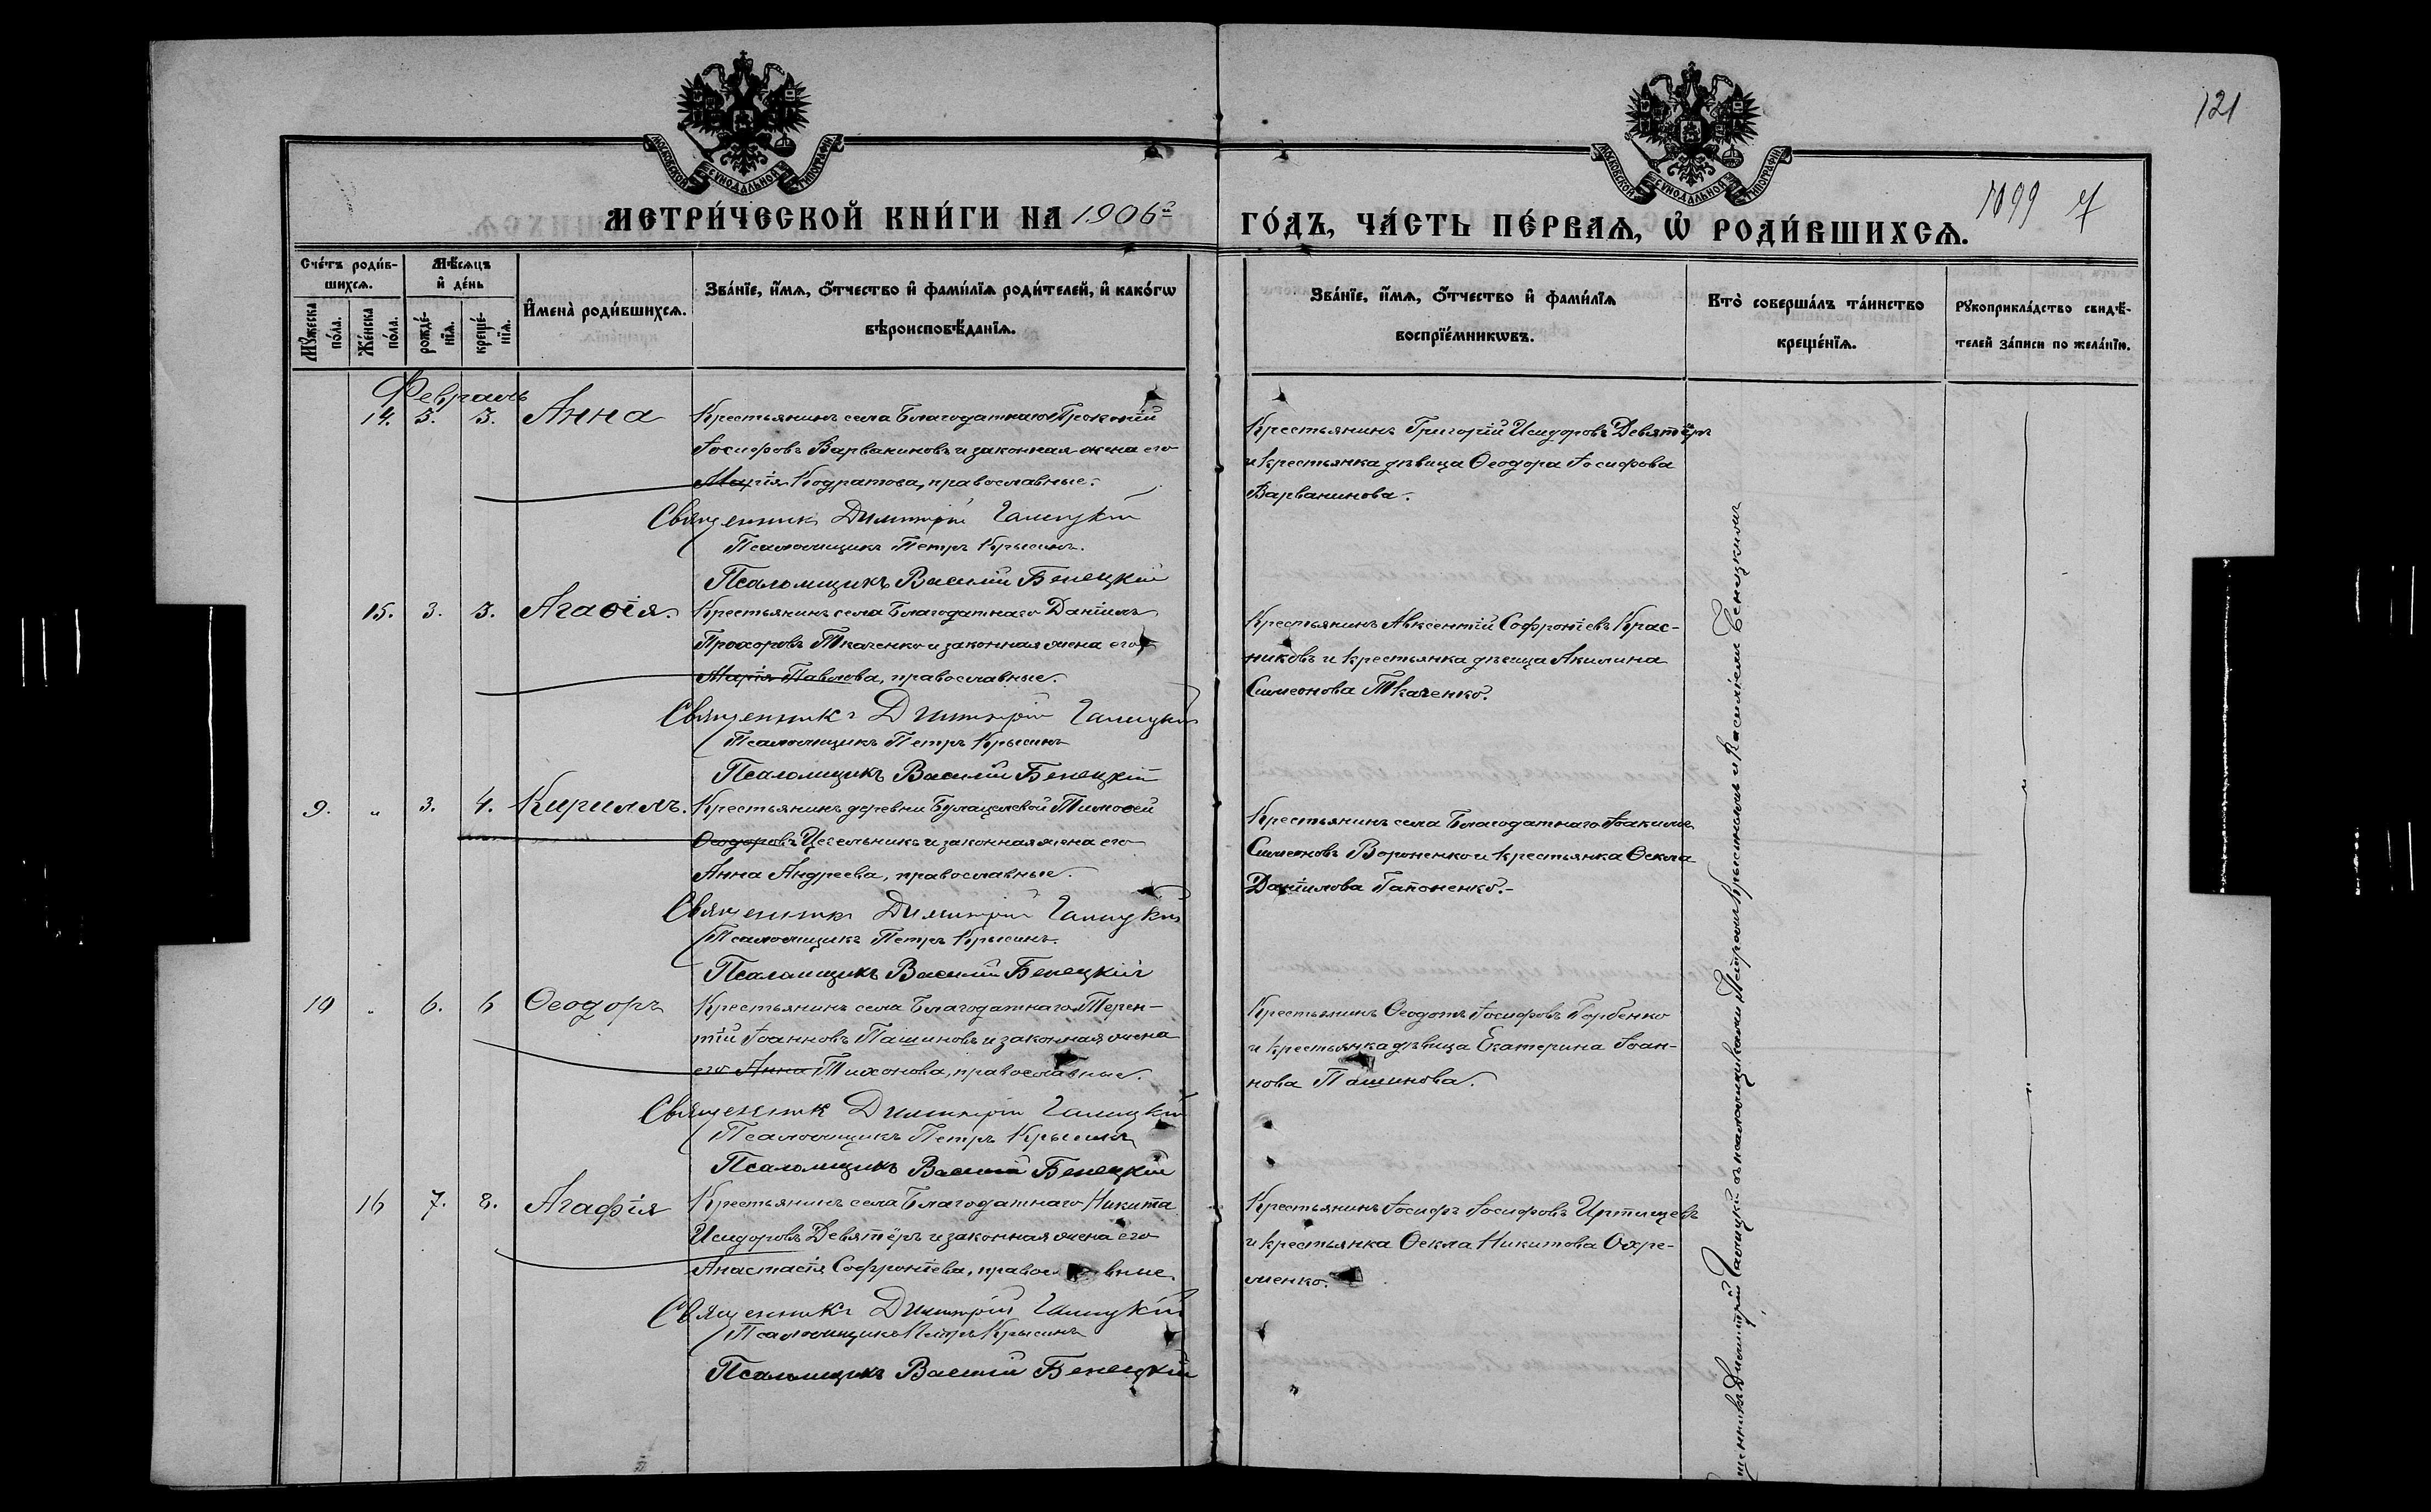 121
МОСКОВСКОЙ СѴНОДАЛЬНОЙ ТИПОГРАФІИ
МОСКОВСКОЙ СѴНОДАЛЬНОЙ ТИПОГРАФІИ
1099
МЕТРИ́ЧЕСКОЙ КНИ́ГИ НА 1906 г.
ГО́ДЪ, ЧА́СТЬ ПЕ́РВАѦ, Ѡ҆ РОДИ́ВШИХСѦ.
Сче́тъ роди́в-
шихсѧ.
Мѣ́сѧцъ
и҆ де́нь
Мꙋ́жеска по́ла.
Же́нска по́ла.
рожде́-
нїѧ.
креще́-
нїѧ.
И҆мена̀ роди́вшихсѧ.
Зва́нїе, и҆́мѧ, о҆́тчество и҆ фами́лїѧ роди́телей, и҆ како́гѡ
вѣроисповѣ́данїѧ.
Зва́нїе, и҆́мѧ, о҆́тчество и҆ фами́лїѧ
воспрїе́мникѡвъ.
Кто̀ соверша́лъ та́инство
креще́нїѧ.
Рꙋкоприкла́дство свидѣ́-
телей за́писи по жела́нїю.
Февраль
14. 3. 3. Анна Крестьянинъ села Благодатнаго Прокопій
Іосифовъ Варваниновъ и законная жена его
Марія Кодратова, православные.
Священникъ Димитрій Галицкій
Псаломщикъ Петръ Крысинъ.
Псаломщикъ Василій Бенецкій
Крестьянинъ Григорій Исидоровъ Девятёръ
и крестьянка дѣвица Ѳеодора Іосифова
Варванинова.
15. 3. 3. Агаѳія. Крестьянинъ села Благодатнаго Даніилъ
Прохоровъ Ткаченко и законная жена его
Марія Павлова, православные.
Священникъ Димитрій Галицкій
Псаломщикъ Петръ Крысинъ
Псаломщикъ Василій Бенецкій
Крестьянинъ Авксентій Софроніевъ Крас-
никовъ и крестьянка дѣвица Акилина
Симеонова Ткаченко.
9. " 3. 4. Кириллъ. Крестьянинъ деревни Булацелевой Тимоѳей
Ѳеодоровъ Цесельникъ и законная жена его
Анна Андреева, православные.
Священникъ Димитрій Галицкій
Псаломщикъ Петръ Крысинъ.
Псаломщикъ Василій Бенецкій
Крестьянинъ села Благодатнаго Іоакимъ
Симеоновъ Вороненко и крестьянка Ѳекла
Даніилова Гапоненко.-
10 " 6. 6 Ѳеодоръ Крестьянинъ села Благодатнаго Терен-
тій Іоанновъ Пашиновъ и законная жена
его Анна Тихонова, православные.
Священникъ Димитрій Галицкій
Псаломщикъ Петръ Крысинъ
Псаломщикъ Василій Бенецкій
Крестьянинъ Ѳеодотъ Іосифовъ Горбенко
и крестьянка дѣвица Екатерина Іоан-
нова Пашинова.
16 7. 8. Агафія Крестьянинъ села Благодатнаго Никита
Исидоровъ Девятёръ и законная жена его
Анастасія Софроніева, православные.
Священникъ Димитрій Галицкій
Псаломщикъ Петръ Крысинъ
Псаломщикъ Василій Бенецкій
Крестьянинъ Іосифъ Іосифовъ Иртищевъ
и крестьянка Ѳекла Никитова Охре-
менко.
Священникъ Димитрій Галицкій съ псаломщиками Петромъ Крысинымъ и Василіемъ Бенецкимъ